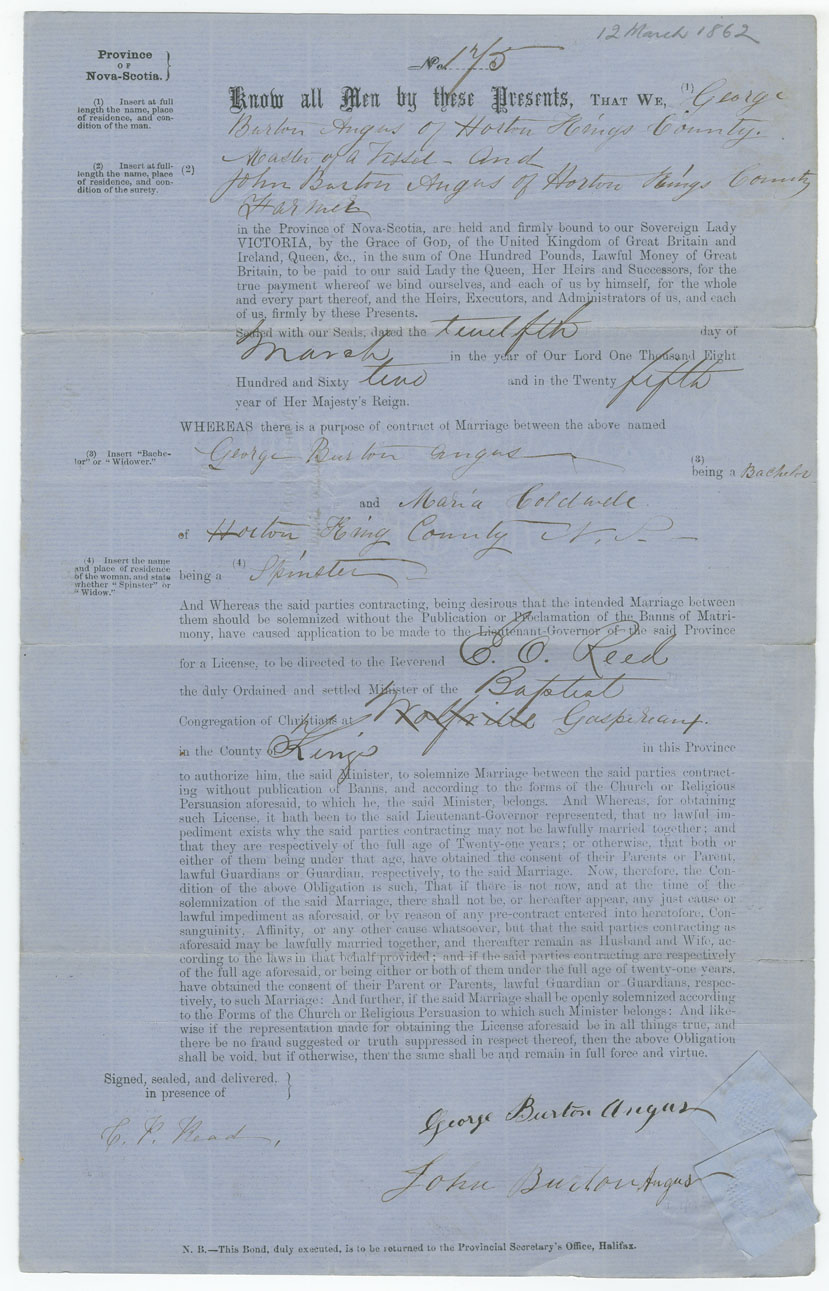 12 March 1862
Province
OF
Nova-Scotia.
No. 175
(1) Insert at full
length the name, place
of residence, and con-
dition of the man.
Know all Men by these Presents, THAT WE, (1) George
Burton Angus of Horton Kings County.
Master of a Vessel - and
(2) Insert at full-
length the name, place
of residence, and con-
dition of the surety.
(2)
John Burton Angus of Horton Kings County
Farmer
in the Province of Nova-Scotia, are held and firmly bound to our Sovereign Lady
VICTORIA, by the Grace of GOD, of the United Kingdom of Great Britain and
Ireland, Queen, &c., in the sum of One Hundred Pounds, Lawful Money of Great
Britain, to be paid to our said Lady the Queen, Her Heirs and Successors, for the
true payment whereof we bind ourselves, and each of us by himself, for the whole
and every part thereof, and the Heirs, Executors, and Administrators of us, and each
of us, firmly by these Presents.
Sealed with our Seals, dated the twelfth day of
March in the year of Our Lord One Thousand Eight
Hundred and Sixty two and in the Twenty fifth
year of Her Majesty's Reign.
WHEREAS there is a purpose of contract of Marriage between the above named
(3) Insert "Bache-
lor" or "Widower."
George Burton Angus (3) being a Bachelor
and Maria Coldwell
of Horton King County N. S.
(4) Insert the name
and place of residence
of the woman, and state
whether "Spinster" or
"Widow."
being a (4) Spinster
And Whereas the said parties contracting, being desirous that the intended Marriage between
them should be solemnized without the Publication or Proclamation of the Banns of Matri-
mony, have caused application to be made to the Lieutenant-Governor of the said Province
for a License, to be directed to the Reverend E. O. Reed
the duly Ordained and settled Minister of the Baptist
Congregation of Christians at Wolfville Gaspereaux.
in the County of Kings in this Province
to authorize him, the said Minister, to solemnize Marriage between the said parties contract-
ing without publication of Banns, and according to the forms of the Church or Religious
Persuasion aforesaid, to which he, the said Minister, belongs. And Whereas, for obtaining
such License, it hath been to the said Lieutenant-Governor represented, that no lawful im-
pediment exists why the said parties contracting may not be lawfully married together; and
that they are respectively of the full age of Twenty-one years; or otherwise, that both or
either of them being under that age, have obtained the consent of their Parents or Parent,
lawful Guardians or Guardian, respectively, to the said Marriage. Now, therefore, the Con-
dition of the above Obligation is such, That if there is not now, and at the time of the
solemnization of the said Marriage, there shall not be, or hereafter appear, any just cause or
lawful impediment as aforesaid, or by reason of any pre-contract entered into heretofore, Con-
sanguinity, Affinity, or any other cause whatsoever, but that the said parties contracting as
aforesaid may be lawfully married together, and thereafter remain as Husband and Wife, ac-
cording to the laws in that behalf provided; and if the said parties contracting are respectively
of the full age aforesaid, or being either or both of them under the full age of twenty-one years,
have obtained the consent of their Parent or Parents, lawful Guardian or Guardians, respec-
tively, to such Marriage: And further, if the said Marriage shall be openly solemnized according
to the Forms of the Church or Religious Persuasion to which such Minister belongs: And like-
wise if the representation made for obtaining the License aforesaid be in all things true, and
there be no fraud suggested or truth suppressed in respect thereof, then the above Obligation
shall be void, but if otherwise, then the same shall be and remain in full force and virtue.
Signed, sealed, and delivered,
in presence of
George Burton Angus
John Burton Angus
N. B.—This Bond, duly executed, is to be returned to the Provincial Secretary's Office, Halifax.